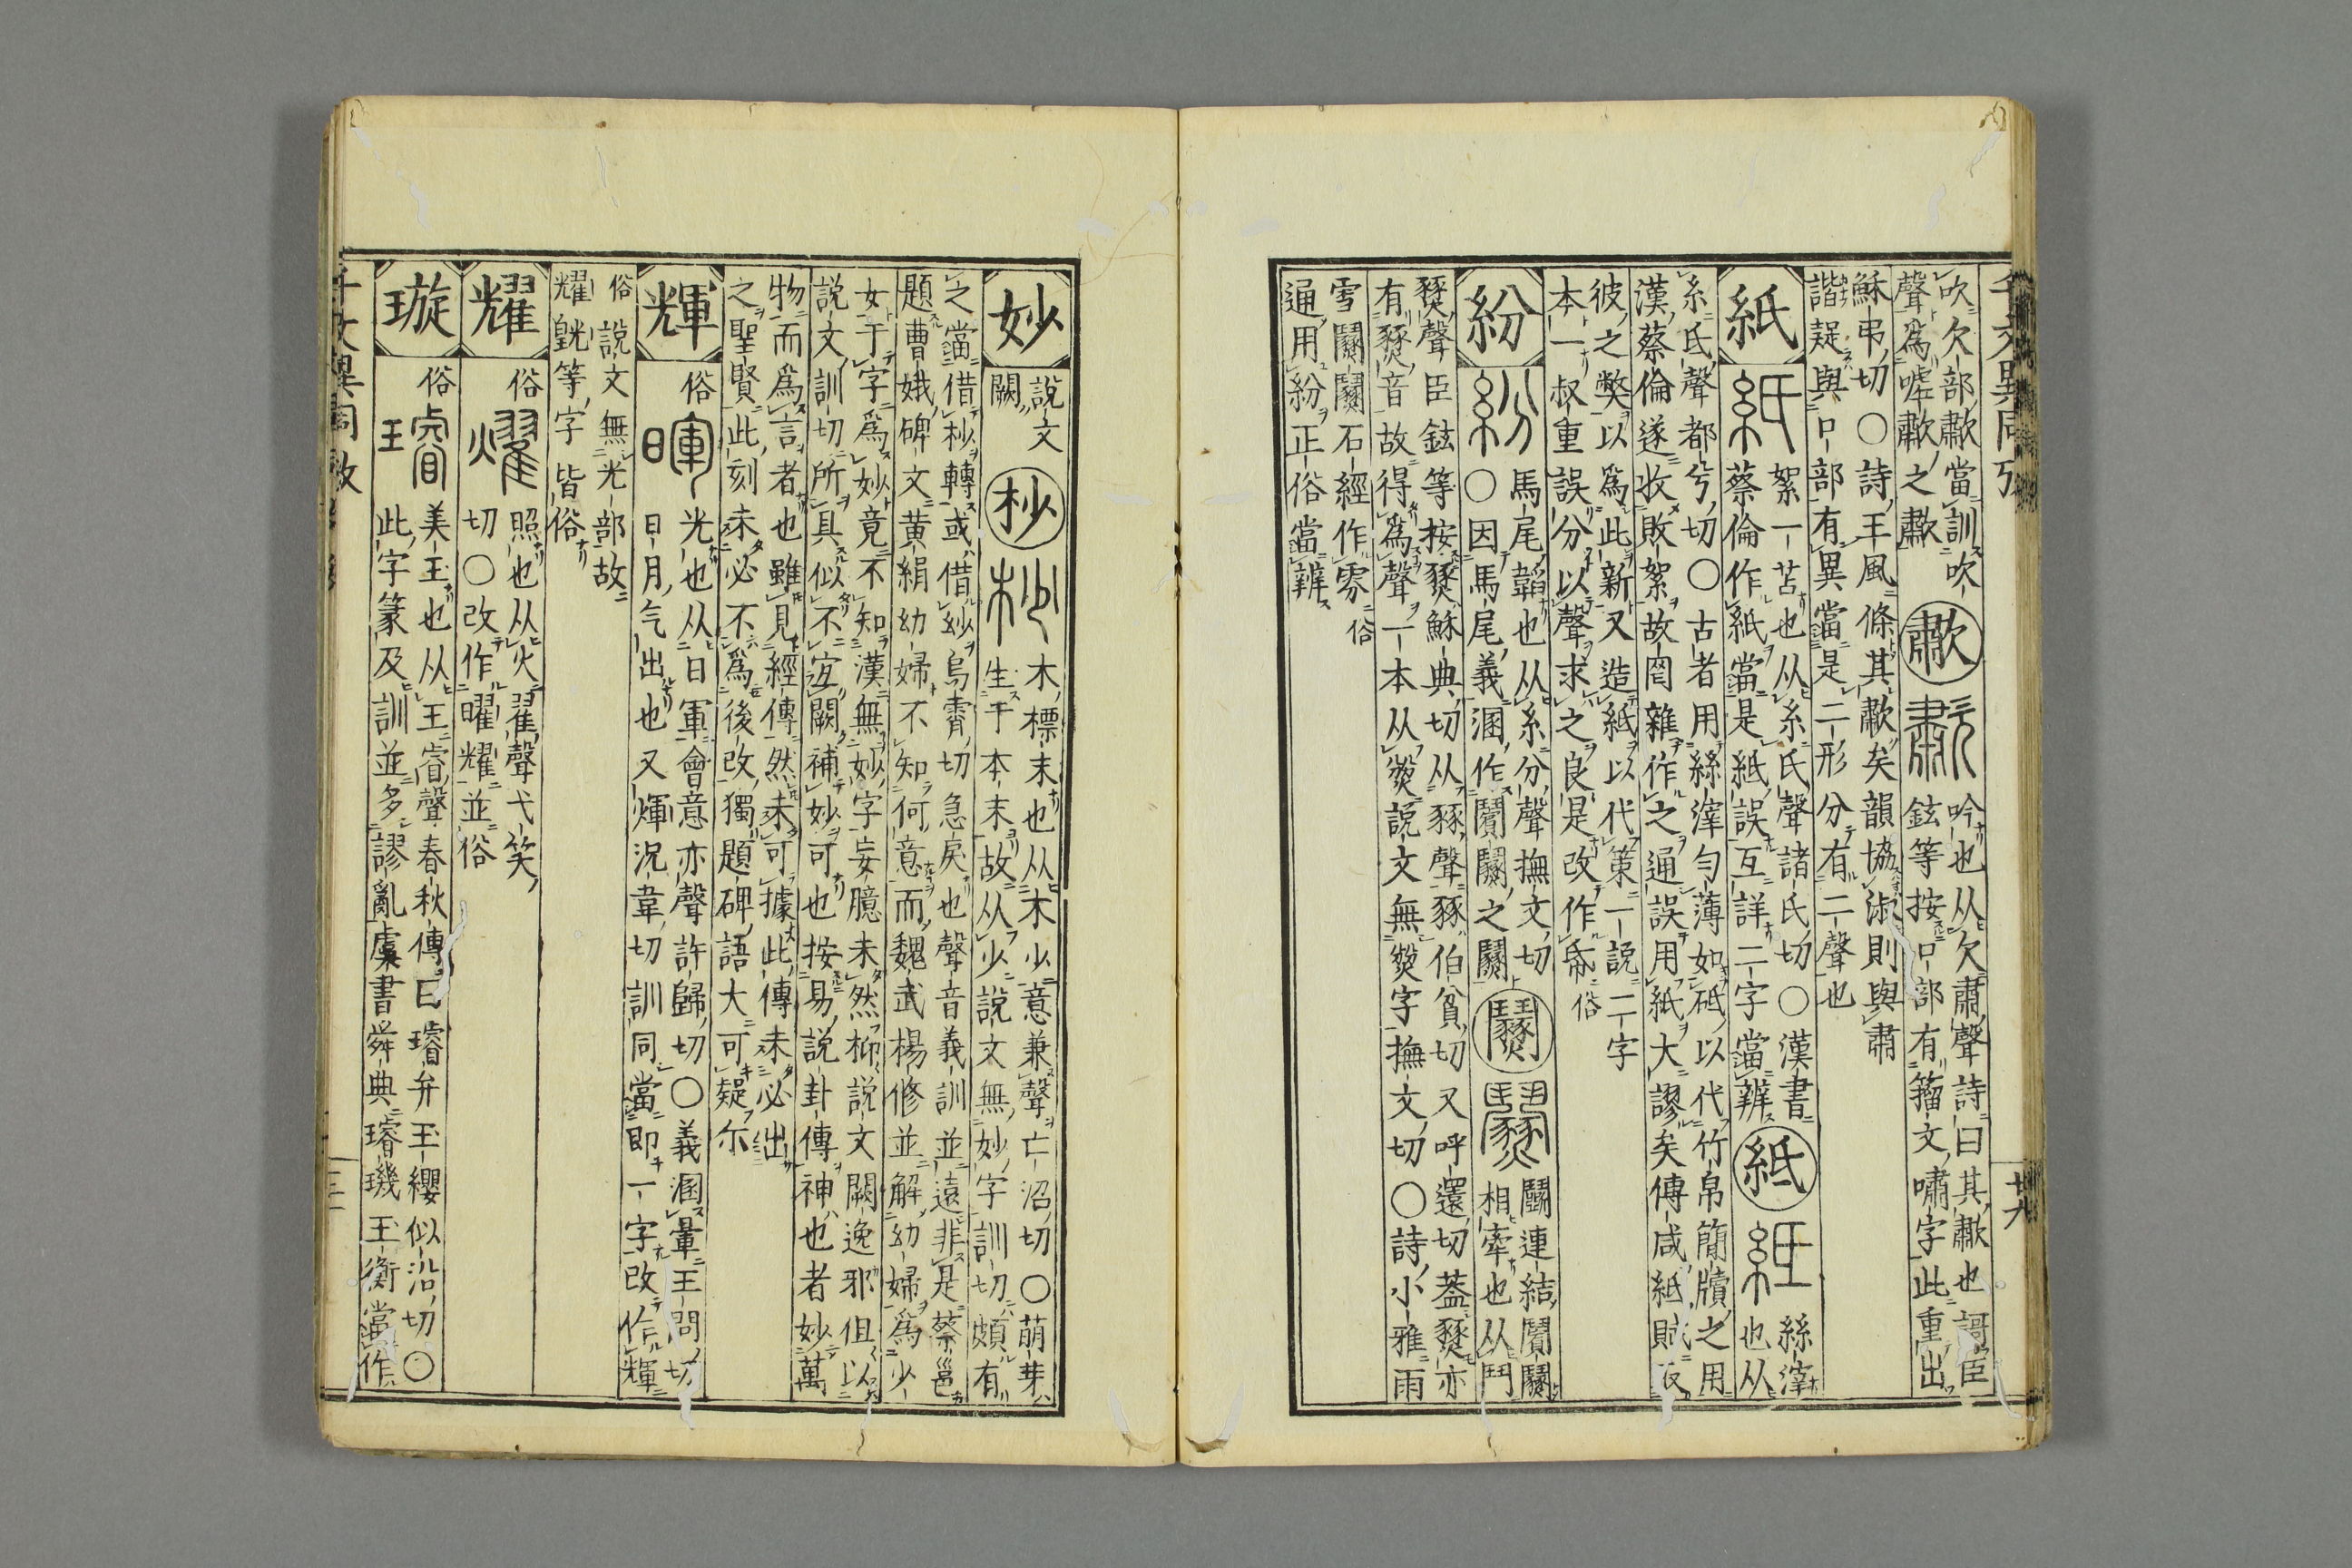 千文異同攷
廿九
吹欠部歗當訓吹
聲爲嘑歗之歗
歗
吟也从欠肅聲詩曰其歗也謌臣
鉉等按口部有籀文嘯字此重出
穌弔切〇詩王風條其歗矣韻協淑則與肅
諧疑與口部有異當是二形分有二聲也
紙
絮一苫也从糸氏聲諸氏切〇漢書
蔡倫作紙當是紙誤互詳二字當辨
紙
絲滓也从
糸氏聲都兮切〇古者用絲滓勻薄如砥以代竹帛簡牘之用
漢蔡倫遂收敗絮故罔雜作之通誤用紙大謬矣傅咸紙賦
彼之獘以爲此新又造紙以代策一說二字
本一叔重誤分以聲求之良是改作帋俗
紛
馬尾韜也从糸分聲撫文切
〇因馬尾義溷作鬭之
鬭連結
相牽也从鬥
燹聲臣鉉等按燹穌典切从豩聲豩伯貧切又呼還切葢燹亦
有豩音故得爲聲一本从燹說文無燹字撫文切〇詩小雅雨
雪石經作雰俗
通用紛正俗當辨
妙
說文
闕
杪
木標末也从木少意兼聲亡沼切〇萌芽
生于本末故从少說文無妙字訓切頗有
之當借杪轉或借紗烏霽切急戾也聲音義訓並遠非是蔡邕
題曹娥碑文黄絹幼婦不知何意而魏武楊修並解幼婦爲少
女于字爲妙竟不知漢無妙字妄臆未然抑說文闕逸邪但以
說文訓切所具似不宜闕補妙可也按易說卦傳神也者妙萬
物而爲言者也雖見經傳然未可據此傳未必出
之聖賢此刻未必不爲後改獨題碑語大可疑尓
輝
俗
暉
光也从日軍會意亦聲許歸切〇義溷暈王問切
日月气出也又煇況韋切訓同當即一字改作輝
俗說文無光部故
耀皝等字皆俗
耀
俗
燿
照也从火翟聲弋笑
切〇改作曜耀並俗
璇
俗
璿
美玉也从王睿聲春秋傳曰璿弁玉纓似沿切〇
此字篆及訓並多謬亂虞書舜典璿璣玉衡當作
千文異同攷
三十